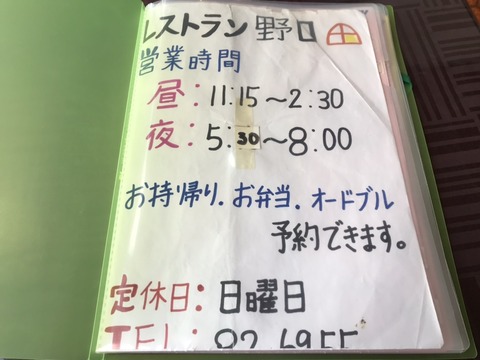 レストラン 野口
営業時間
昼:11:15～2:30
夜:5:30～8:00
お持帰り.お弁当.オードブル
予約できます。
定休日:日曜日
TEL:82-6955